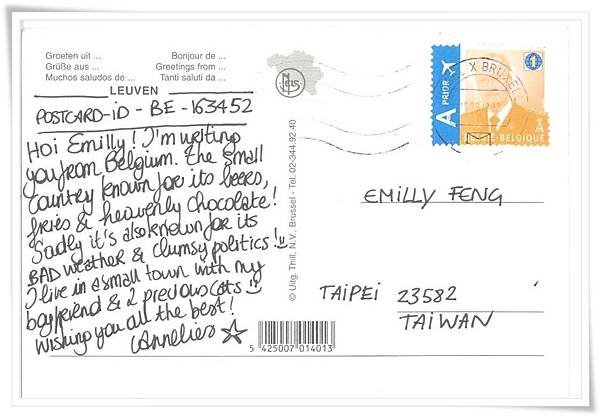 Groeten uit ... Bonjour de ...
Grüße aus ... Greetings from ...
Muchos saludos de ... Tanti saluti da ...
LEUVEN
POSTCARD-ID - BE - 163452
Hoi Emilly! I'm writing
you from Belgium. The small
country known for its beers,
fries & heavenly chocolate!
Sadly it's also known for its
BAD weather & clumsy politics!
I live in a small town with my
boyfriend & 2 precious cats
Wishing you all the best!
Annelies
© Uitg. Thill, N.V., Brussel - Tel. 02-344.92.40
5 425007 014013
A PRIOR
X BRUXEL
1
A
BELGIQUE
EMILLY FENG
TAIPEI 23582
TAIWAN